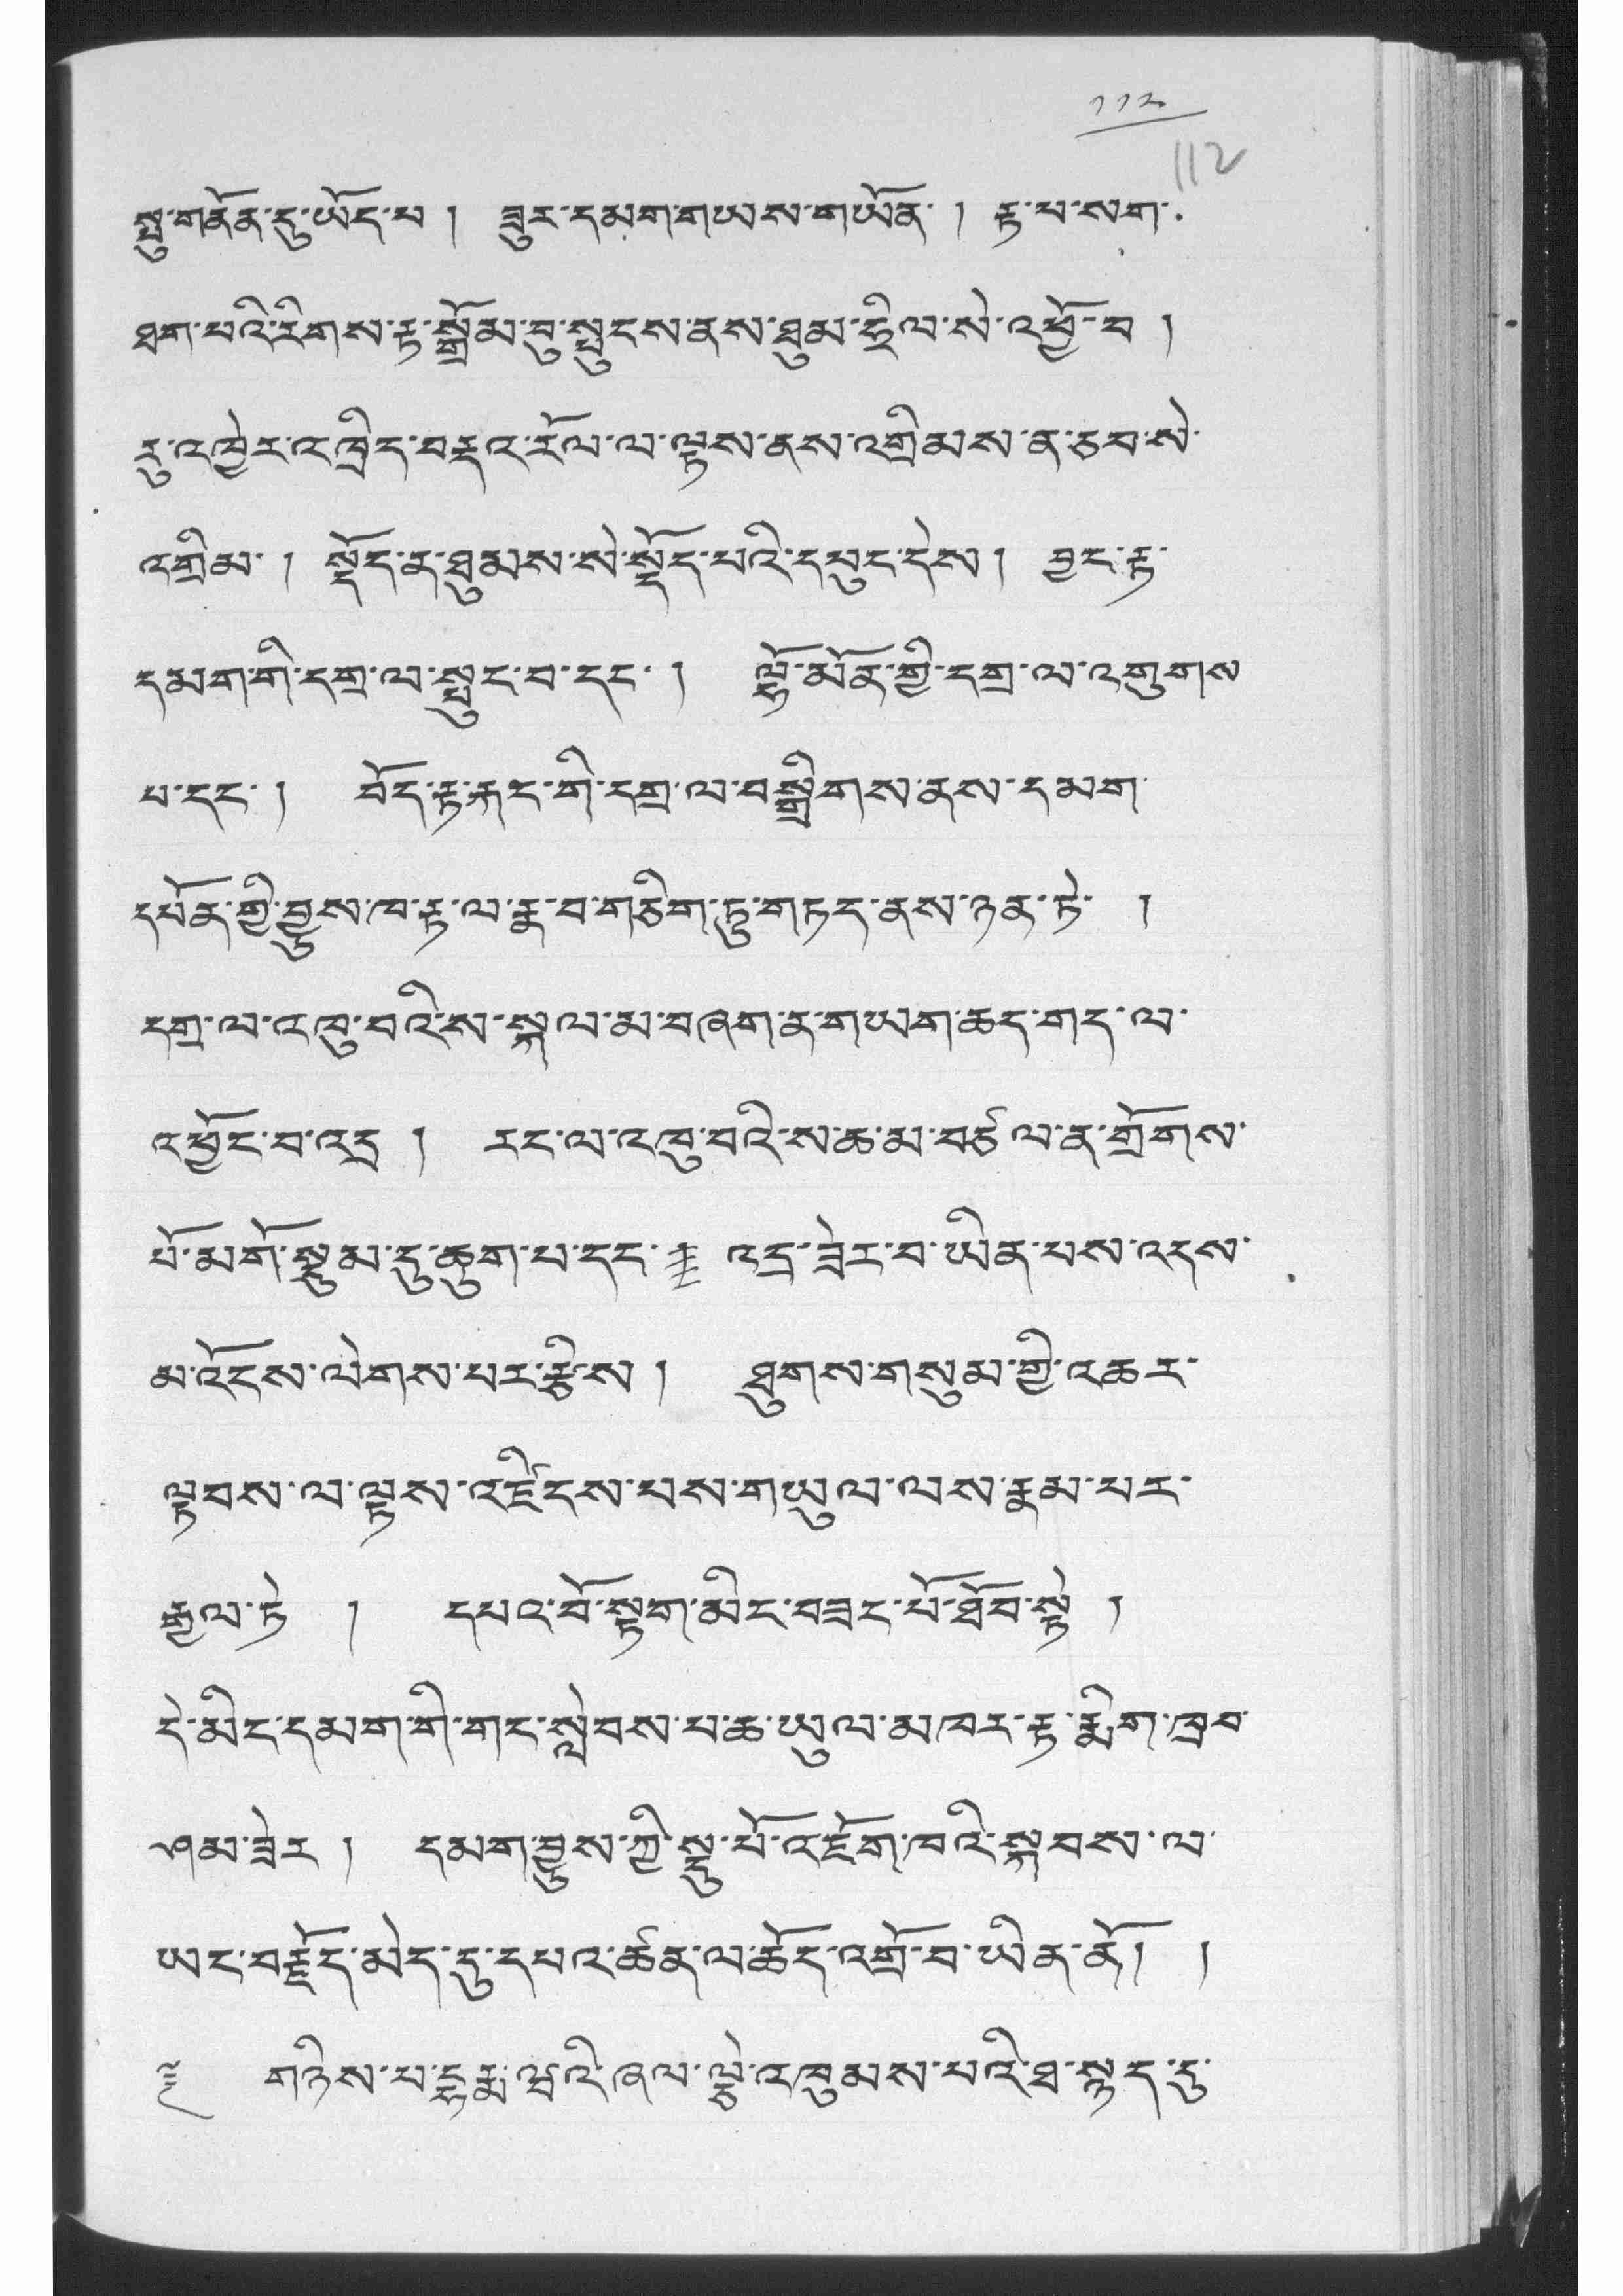 ༡༡༢
112
སྤུ་གནོན་དུ་ཡོད་པ། ཟུར་དམག་གཡས་གཡོན། རྟ་པ་སག་
ཐག་པའི་རིགས་རྟ་སྒྲོམ་བུ་སྤུངས་ནས་ཐུམ་ཧྲིལ་སེ་འཕྱོ་བ།
རུ་འཁྱེར་འཁྲིད་བརྡའ་རོལ་ལ་ལྟས་ནས་འགྲིམས་ན་ཅབ་སེ་
འགྲིམ། སྡོད་ན་ཐུམས་སེ་སྡོད་པའི་དཔུང་དེས། བྱང་རྟ་
དམག་གི་དགྲ་ལ་སྤུང་བ་དང་། ལྷོ་མོན་གྱི་དགྲ་ལ་འགུགས
པ་དང་། བོད་རྟ་རྐང་གི་དགྲ་ལ་བསྒྲིགས་ནས་དམག་
དཔོན་གྱི་བྱུས་ཁ་རྟ་ལ་རྣ་བ་གཅིག་ཏུ་གཏད་ནས་ཉན་ཏེ །
དགྲ་ལ་འཁུ་བའི་ས་སྐལ་མ་བཞག་ན་གཡག་ཆད་གད་ལ་
འཕྱོང་བ་འདྲ། རང་ལ་འཁུ་བའི་ས་ཆ་མ་བཙལ་ན་གྲོགས་
པོ་མགོ་སྡུམ་དུ་ཆུག་པ་དང་ འདྲ་ཟེར་བ་ཡིན་པས་འདས་
མ་འོངས་ལེགས་པར་རྩིས། ཐུགས་གསུམ་གྱི་འཆར་
ལྟབས་ལ་ལྟས་འཛིངས་པས་གཡུལ་ལས་རྣམ་པར་
རྒྱལ་ཏེ། དཔའ་བོ་སྟག་མིང་བཟང་པོ་ཐོབ་སྟེ།
དེ་མིང་དམག་གི་གང་སླེབས་པ་ཆ་ཡུལ་མཁར་རྟ་རྨིག་ཁྲབ་
ཞམ་ཟེར། དམག་བྱུས་ཀྱི་སྡུ་པོ་འཇོག་ཁའི་སྐབས་ལ་
ཡང་བརྗོད་མེད་དུ་དཔའ་ཚན་ལ་ཆོད་འགྲོ་བ་ཡིན་ནོ། །
༈ གཉིས་པ་རྔ་རྨ་ལྦའི་ཞལ་ལྕེ་འཁུམས་པའི་ཐ་སྙད་དུ་